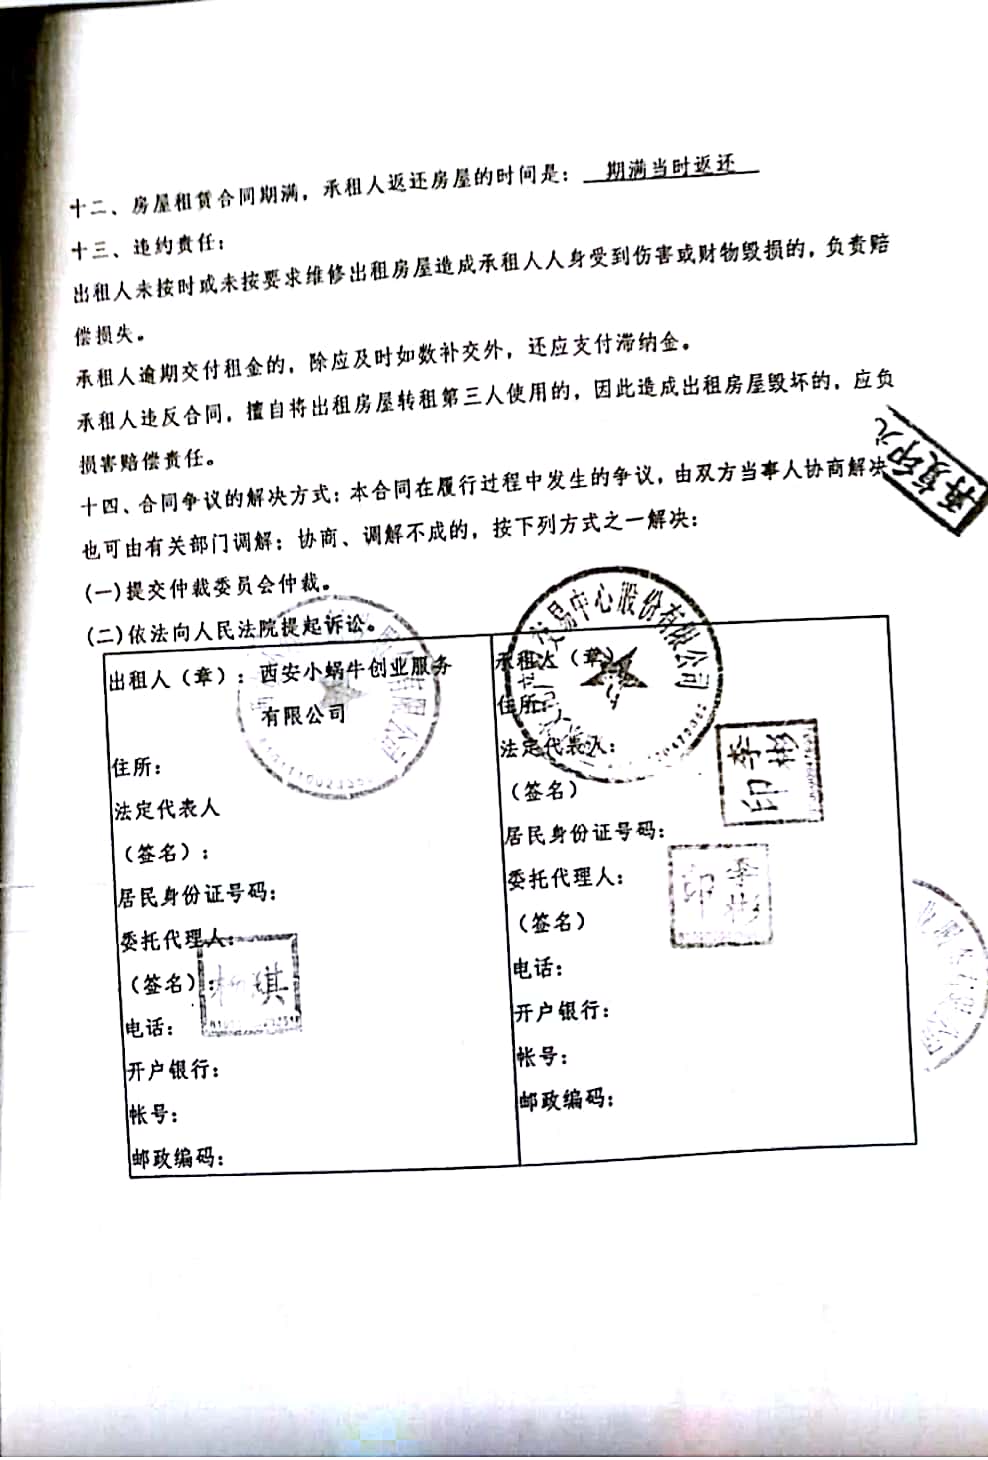 十二、房屋租赁合同期满，承租人返还房屋的时间是：期满当时返还
十三、违约责任：
出租人未按时或未按要求维修出租房屋造成承租人人身受到伤害或财物毁损的，负责赔
偿损失。
承租人逾期交付租金的，除应及时如数补交外，还应支付滞纳金。
承租人违反合同，擅自将出租房屋转租第三人使用的，因此造成出租房屋毁坏的，应负
损害赔偿责任。
十四、合同争议的解决方式：本合同在履行过程中发生的争议，由双方当事人协商解决
也可由有关部门调解；协商、调解不成的，按下列方式之一解决：
(一)提交仲裁委员会仲裁。
(二)依法向人民法院提起诉讼。
出租人（章）：西安小蜗牛创业服务
有限公司
住所：
法定代表人
（签名）：
居民身份证号码：
委托代理人：
（签名）：
电话：
开户银行：
帐号：
邮政编码：
承租人（章）
住所：
法定代表人：
（签名）
居民身份证号码：
委托代理人：
（签名）
电话：
开户银行：
帐号：
邮政编码：
交易中心股份有限公司
李彬
印
李彬
印
琪
再复印无